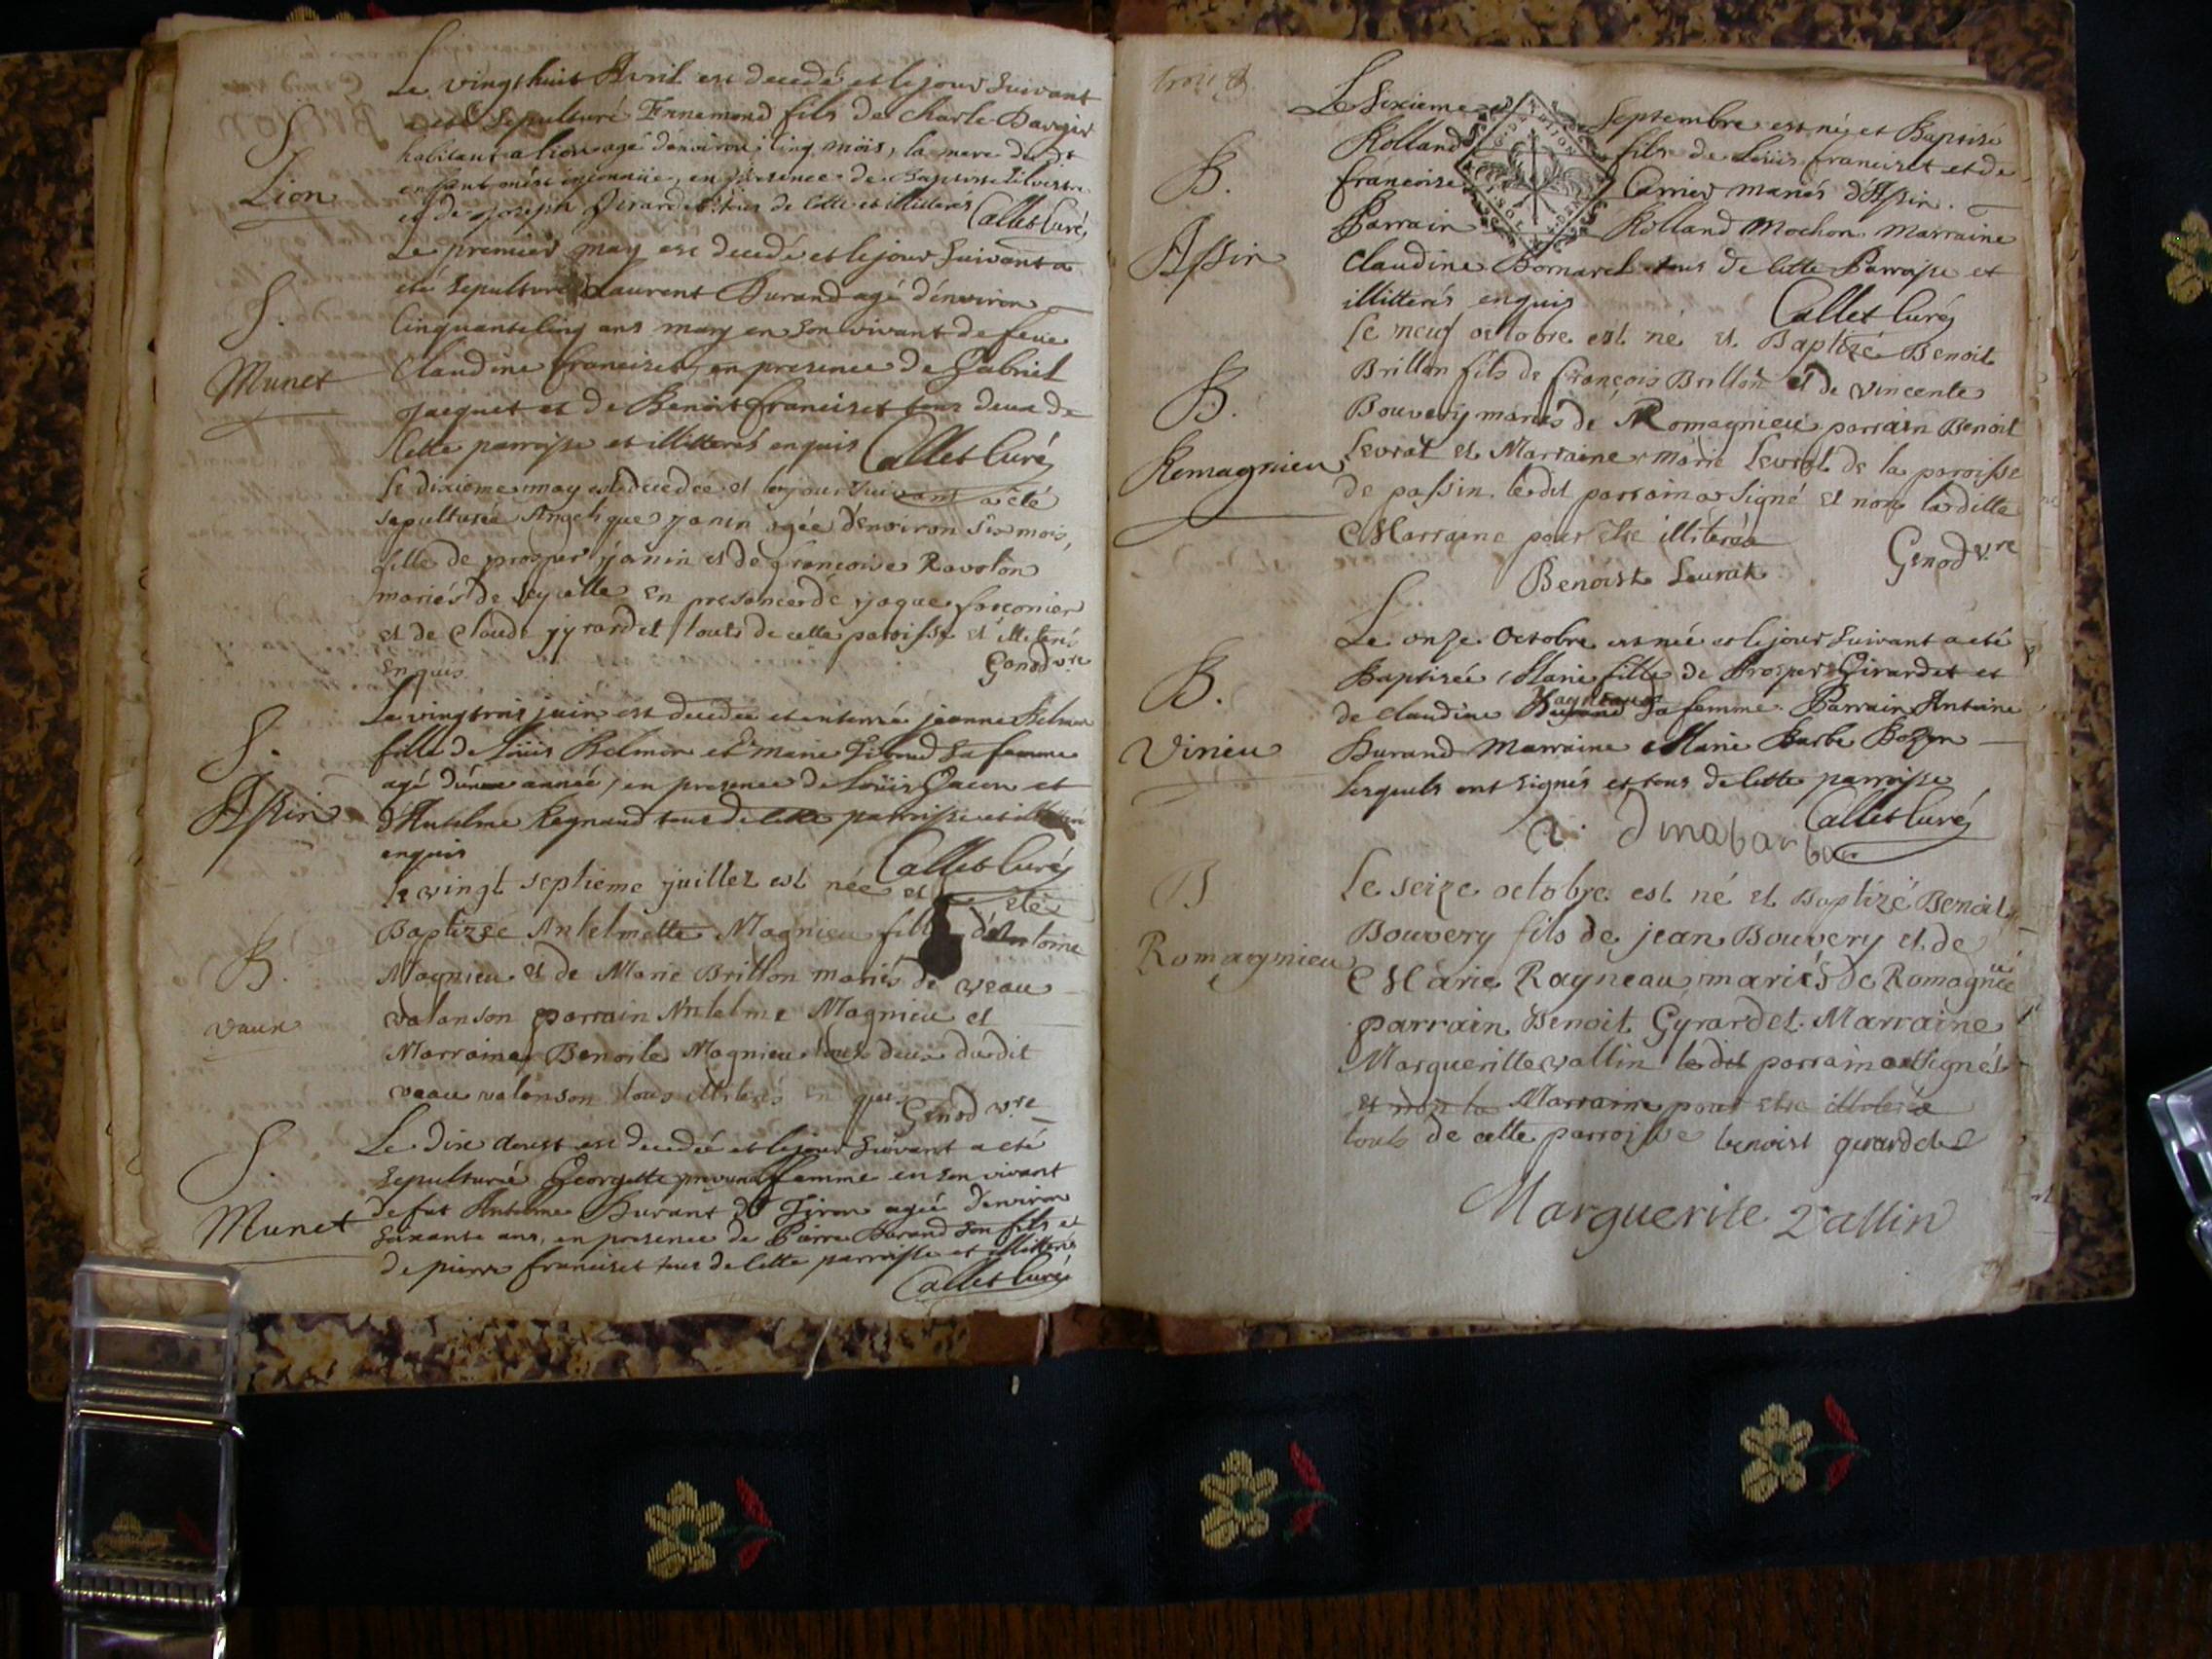 Le vingt huit Avril est decedé et le jour Suivant
a eté Sepulturé Ennemond fils de Charle
habitant a lion agé d'environ Cinq mois, la mere du dt
enfant m'est inconnüe, en presence de Baptiste Silvestre
et de Joseph Girardet tous de Cette et illiterés Callet Curé
S.
Lion
Le premier may est decedé et le jour Suivant a
eté Sepulturé Laurent Durand agé d'environ
Cinquante Cinq ans mary en Son vivant de feüe
Claudine franciset, en presence de Gabriel
Jacquet et de Benoit franciset tous deux de
Cette parroisse et illitterés enquis Callet Curé
S.
Munet
Le dixieme may est decedée et le jour Suivant a été
sepulturée Angelique janin agée d'environ six mois,
fille de prosper janin et de françoise Ravolon
mariés de en presence de jaque
et de Claude gyrardet touts de cette paroisse et illiterés
enquis. Genod vre
Le vingtrois juin est decedée et enterrée jeanne Belmon
fille de Loüis Belmon et Marie Giroud Sa femme
agé d'une année, en presence de Loüis Gacon et
d'Antelme Regnaud tous de Cette parroisse et
enquis Callet Curé
S.
Assin
le vingt septieme juillet est née et été
Baptizée Antelmette Magnieu fille d'Antoine
Magnieu et de Marie Brillon mariés de veau
valanson parrain Antelme Magnieu et
Marraine Benoite Magnieu tous deux dudit
veau valanson tous illiterés en quis Genod vre
B.
vaux
Le dix aoust est decedée et le jour Suivant a eté
Sepulturée Georgette femme en Son vivant
de fut Antelme Durant dt Tiron agée d'environ
Soixante ans, en presence de Pierre Durand Son fils et
de pierre franciset tous de Cette parroisse et illitterés
Callet Curé
S.
Munet
trois 8.
Le Sixieme Septembre est né et Baptisé
Rolland fils de Loüis franciset et de
francoise Carrier mariés d'Assin.
Parrain Rolland Mochon Marraine
Claudine Bomarel tous de Cette Parroisse et
illitterés enquis Callet Curé
B.
Assin
le neuf octobre est né et Baptizé Benoit
Brillon fils de françois Brillon et de vincente
Bouvery mariés de Romagnieu parrain Benoit
Levrat et Marraine marie Levrat de la paroisse
de passin. ledit parrain a Signé et non la ditte
Marraine pour être illiterée
Genod vre
Benoist Leurat
B.
Romagnieu
Le onze Octobre est née et le jour Suivant a eté
Baptisée Marie fille de Prosper Girardet et
de Claudine Sa femme Parrain Antoine
Durand Marraine Marie Barbe Bozon
Lesquels ont signés et tous de Cette parroisse
Callet Curé
B.
Virieu
le seize octobre est né et Baptizé Benoit
Bouvery fils de jean Bouvery et de
Marie Rayneau mariés de Romagnieu
parrain Benoit Gyrardet Marraine
Margueritte vallin ledit parrain a Signés
et non la Marraine pour etre illiterée
touts de cette parroisse benoist girardet
Marguerite Vallin
B
Romagnieu